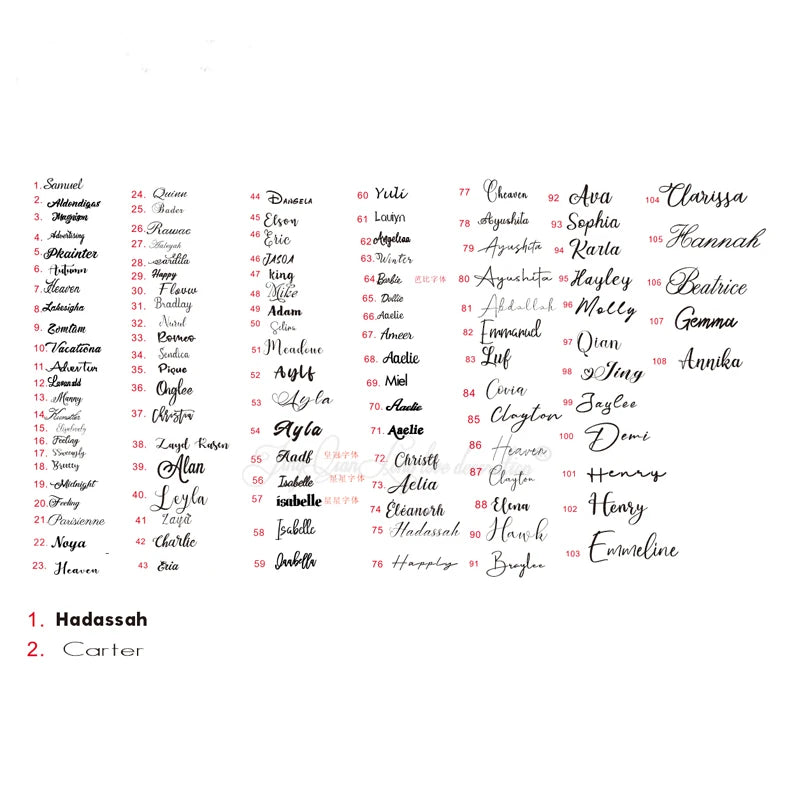 1. Samuel
2. Aldondigas
3. Magrism
4. Advertising
5. Pkainter
6. Autumn
7. Heaven
8. Lakesigha
9. Zomtom
10. Vacationa
11. Advertur
12.
13. Manny
14
15.
16. Feeling
17.
18. Breezy
19. Midnight
20. Feeling
21. Parisienne
22. Noya
23. Heaven
24. Quinn
25. Bader
26. Rawac
27. Haleyah
28.
29. Happy
30. Flovw
31. Bradlay
32. Nurul
33. Romeo
34. Sendica
35. Pique
36. Onglee
37. Christia
38. Zayd Karen
39. Alan
40. Leyla
41 Zaya
42 Charlie
43 Eria
44 DANGELA
45 Elson
46 Eric
46 JASOA
47 king
48 Mike
49 Adam
50 Selina
51 Meadow
52 Aylf
53 Ayla
54 Ayla
55 Aadf 皇冠字体
56 Isabelle 星星字体
57 isabelle 星星字体
58 Isabelle
59
60 Yuli
61 Louiyn
62 Angeliea
63. Winter
64 Barbie 芭比字体
65. Dollie
66. Aaelie
67. Ameer
68. Aaelie
69. Miel
70. Aaelie
71. Aaelie
72 Christf
73. Aelia
74 Eléanorh
75 Hadassah
76 Happly
77 Cheaven
78 Ayushita
79 Ayushita
80 Ayushita
81 Abdallah
82 Emmanud
83 Luf
84 Covia
85 Clayton
86 Heaven
87 Clayton
88 Elena
90 Hawk
91 Braylee
92 Ava
93 Sophia
94 Karla
95 Hayley
96 Molly
97 Qian
98 Jing
99 Jaylee
100 Demi
101 Henry
102 Henry
103 Emmeline
104 Clarissa
105 Hannah
106 Beatrice
107 Gemma
108 Annika
1. Hadassah
2. Carter